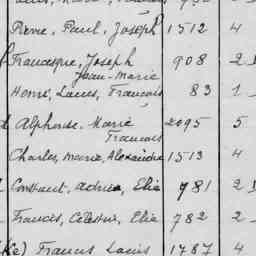 Pierre, Paul, Joseph 1512 4
Francisque, Joseph 908 2
Jean-Marie
Henri, Louis, François 83 1
Alphonse, Marie 2095 5
François
Charles, Marie, Alexandre 1513 4
Constant, Adrien, Elie 781 2
Francis, Célestin, Elie 782 2
Francis Louis 1787 4